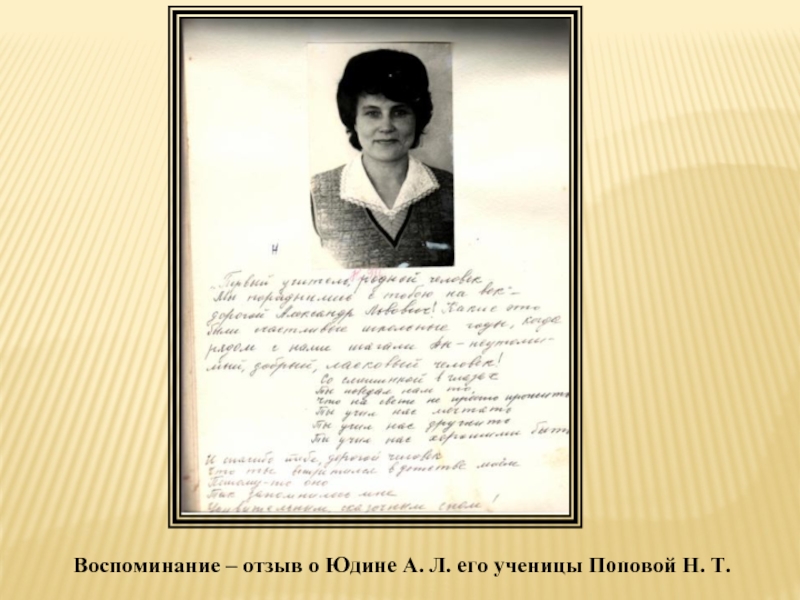 „Первый учитель, родной человек,
Мы породнились с тобою на век" –
дорогой Александр Львович! Какие это
были счастливые школьные годы, когда
рядом с нами шагали Вы – неутоми-
мый, добрый, ласковый человек!
Со смешинкой в глазах
Ты поведал нам то,
Что на свете не просто прожить
Ты учил нас мечтать
Ты учил нас дружить
Ты учил нас хорошими быть
И спасибо тебе, дорогой человек
Что ты встретился в детстве моём
Потому-то оно
Так запомнилось мне
Удивительным, сказочным сном!
Воспоминание – отзыв о Юдине А. Л. его ученицы Поповой Н. Т.